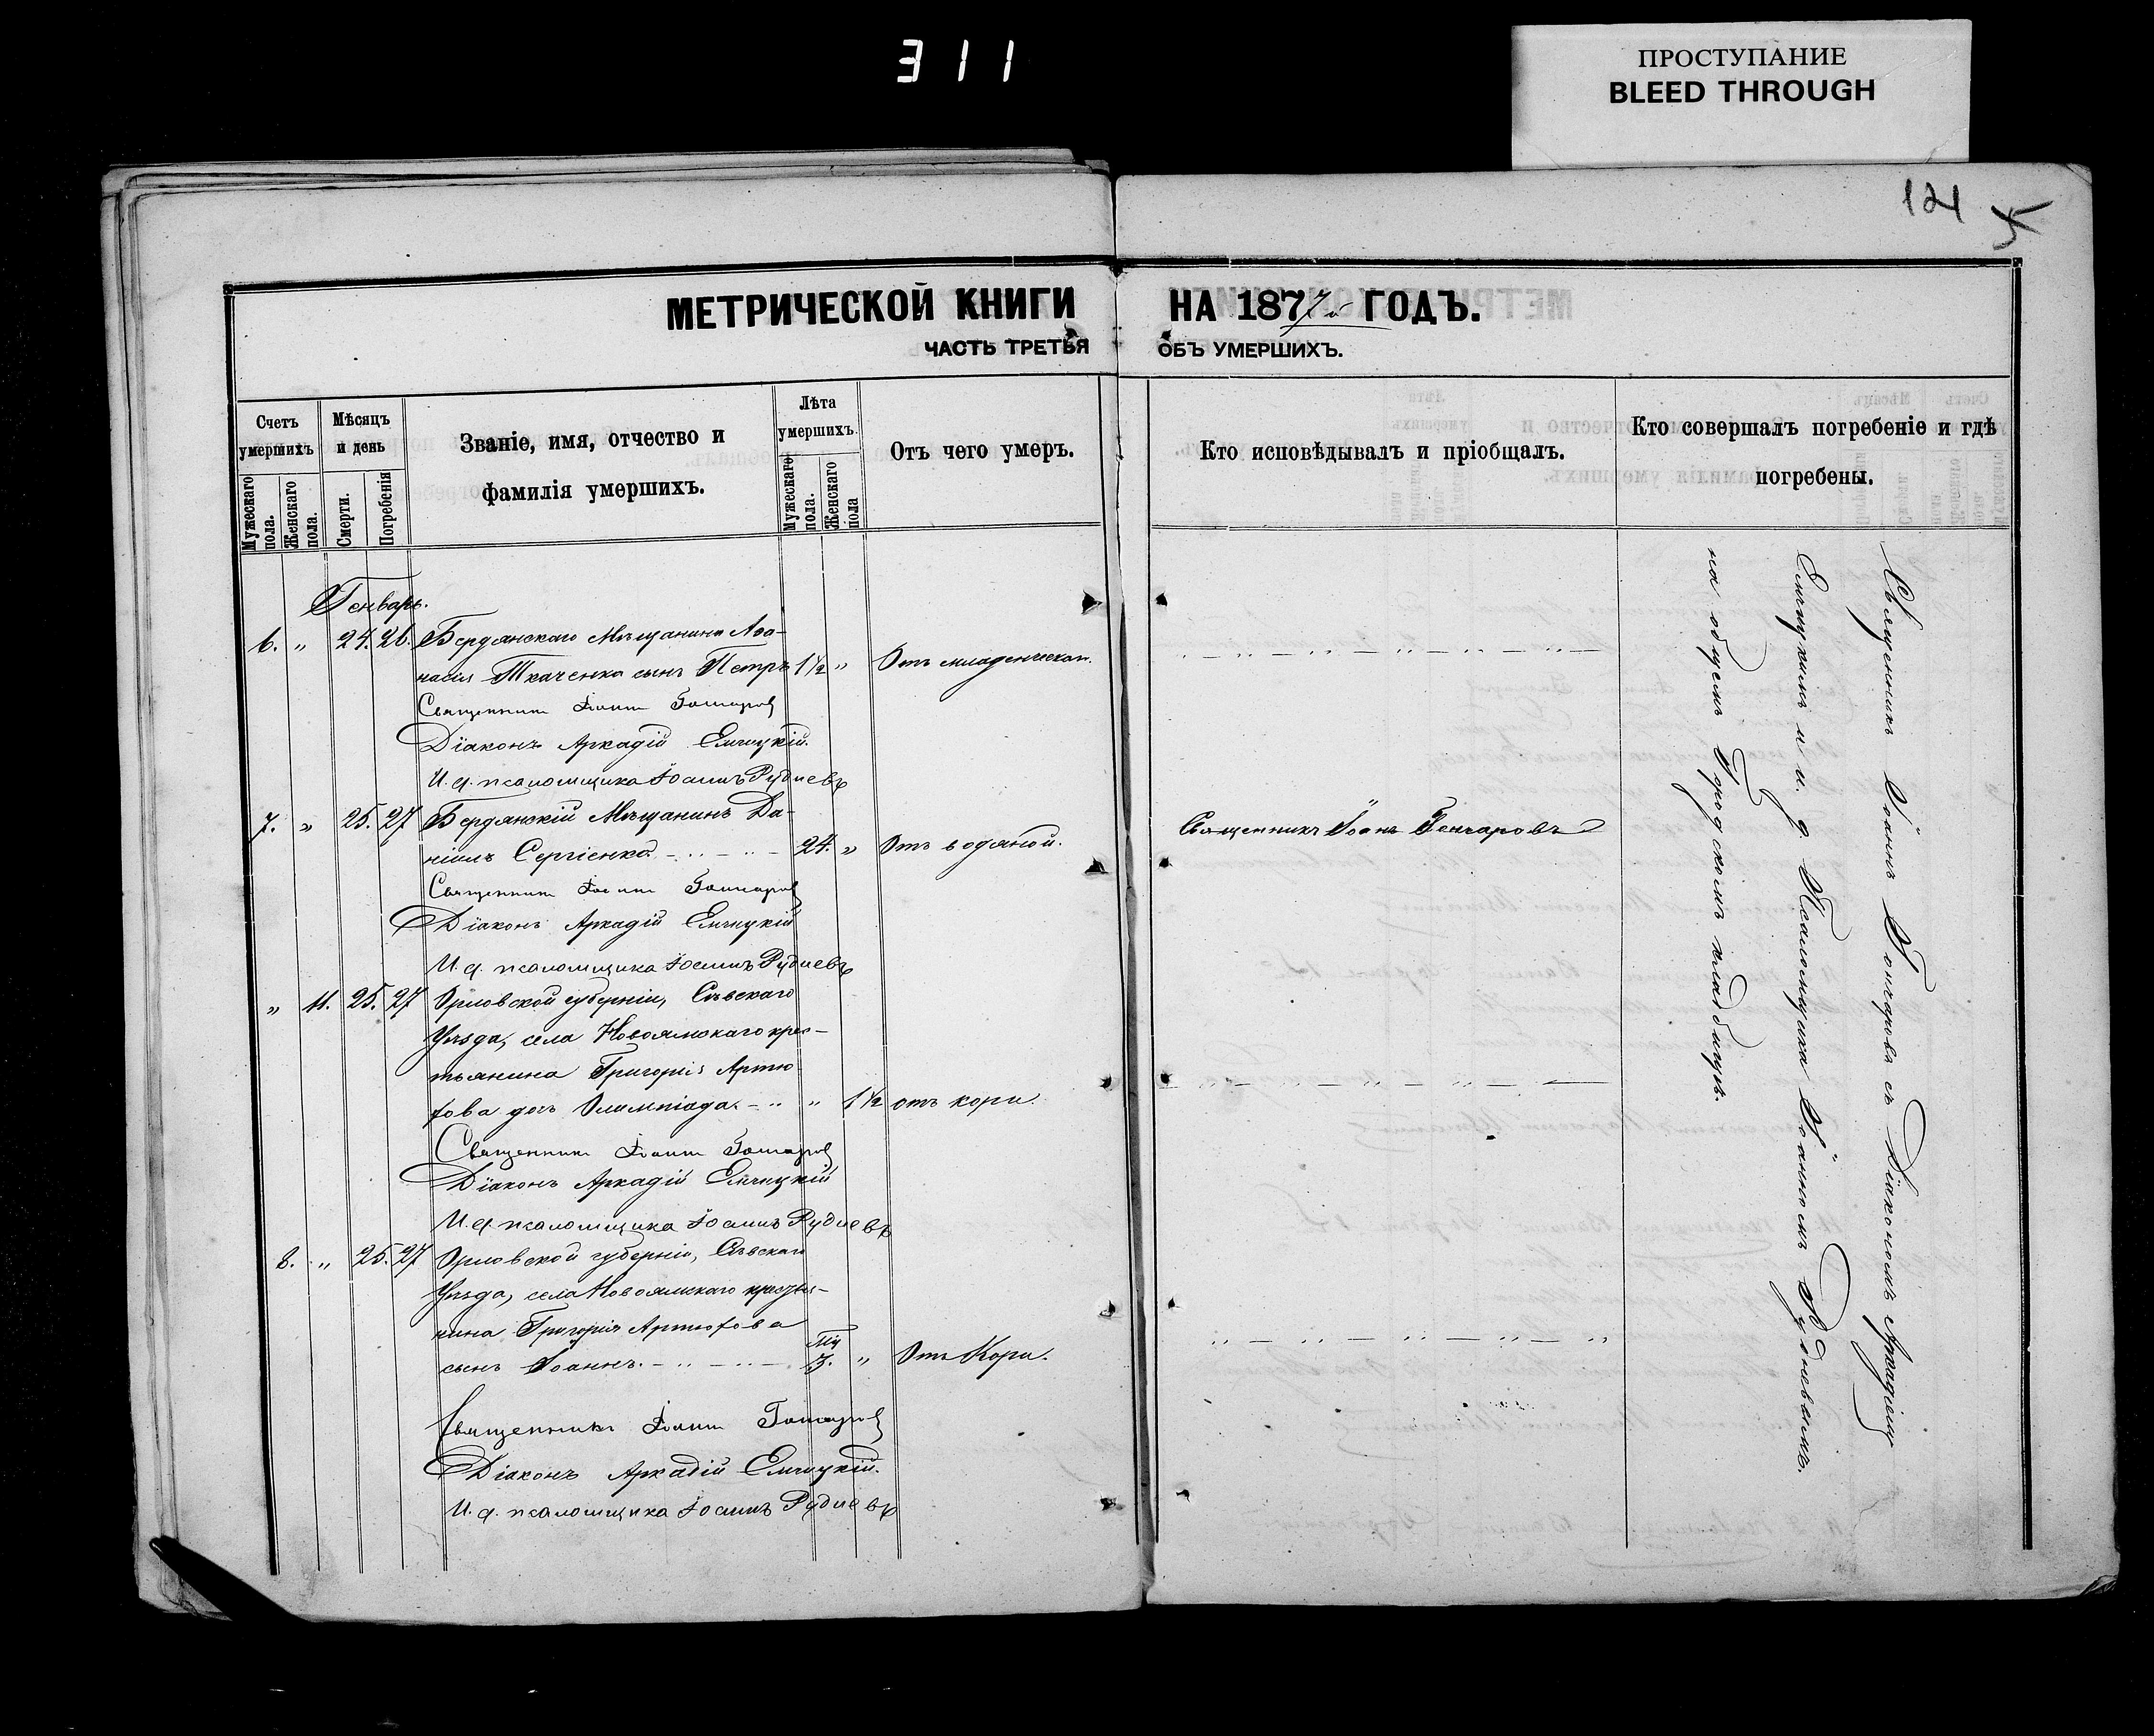 311
ПРОСТУПАНИЕ
BLEED THROUGH
121
МЕТРИЧЕСКОЙ КНИГИ НА 1877й ГОДЪ.
ЧАСТЬ ТРЕТЬЯ ОБЪ УМЕРШИХЪ.
Счетъ умершихъ.
Мужескаго пола.
Женскаго пола.
Мѣсяцъ и день
Смерти.
Погребенія
Званіе, имя, отчество и
фамилія умершихъ.
Лѣта умершихъ.
Мужескаго пола.
Женскаго пола
Отъ чего умеръ.
Кто исповѣдывалъ и пріобщалъ.
Кто совершалъ погребеніе и гдѣ
погребены.
Генварь.
6. „ 24. 26. Бердянскаго Мѣщанина Аѳа-
насія Ткаченка сынъ Петръ 1½ „ Отъ младенческой.
Священникъ Іоаннъ Гончаровъ
Діаконъ Аркадій Емчицкій.
И. д. псаломщика Іоаннъ Рудневъ
7. „ 25. 27 Бердянскій Мѣщанинъ Да-
ніилъ Сергіенко 24. „ Отъ водяной. Священникъ Іоаннъ Гончаровъ
Священникъ Іоаннъ Гончаровъ
Діаконъ Аркадій Емчицкій
И. д. псаломщика Іоаннъ Рудневъ
„ 11. 25. 27 Орловской губерніи, Сѣвскаго
Уѣзда, села Новоямскаго крес-
тьянина Григорія Артю
хова дочь Олимпіада. „ 1½ отъ кори.
Священникъ Іоаннъ Гончаровъ
Діаконъ Аркадій Емчицкій
И. д. псаломщика Іоаннъ Рудневъ
8. „ 25. 27 Орловской губерніи, Сѣвскаго
Уѣзда, села Новоямскаго крестья-
нина Григорія Артюхова
сынъ Іоаннъ. 3. „ Отъ Кори.
Священникъ Іоаннъ Гончаровъ
Діаконъ Аркадій Емчицкій.
И. д. псаломщика Іоаннъ Рудневъ
Священникъ Іоаннъ Гончаровъ съ Діакономъ Аркадіемъ
Емчицкимъ и и. д. Псаломщика Іоанномъ Рудневымъ.
на общемъ городскомъ кладбищѣ.